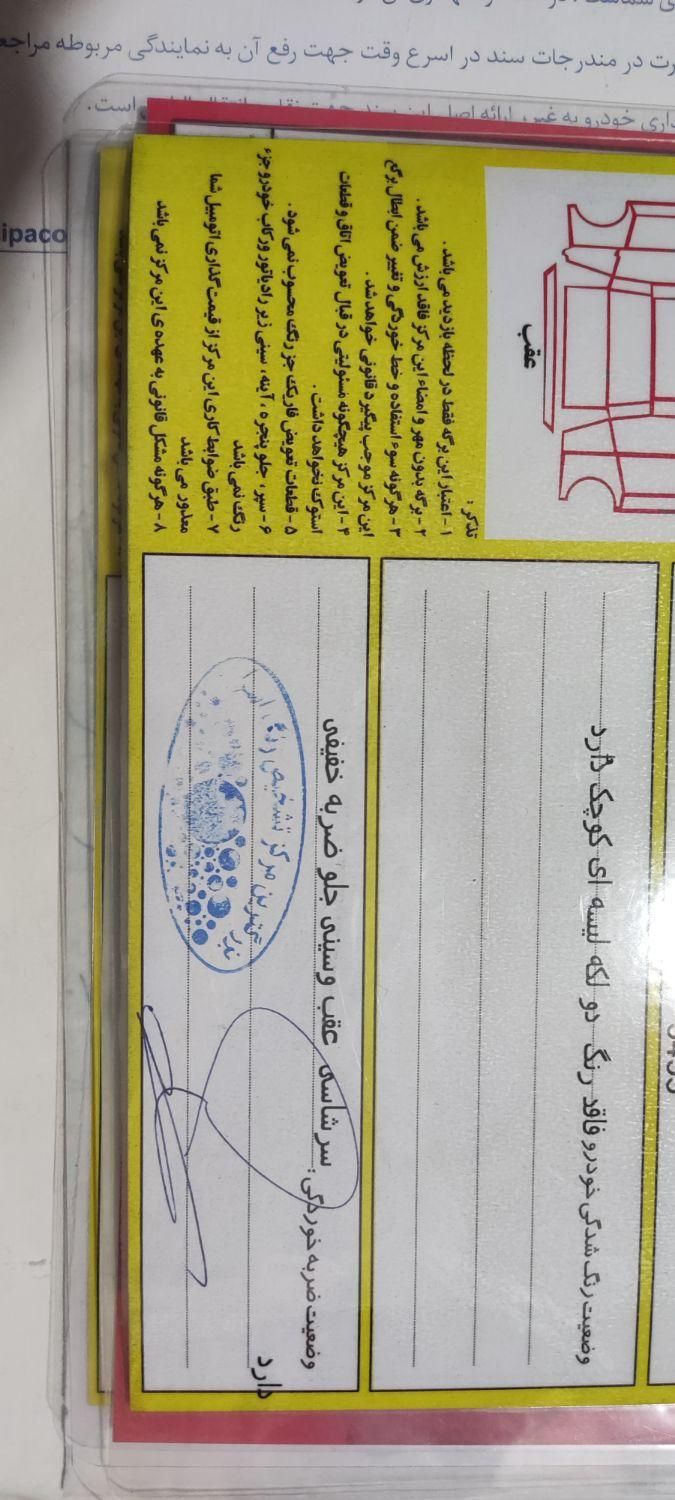 رت در مندرجات سند در اسرع وقت جهت رفع آن به نمایندگی مربوطه مراجع
ipaco
عقب
تذکر :
۱ - اعتبار این برگه فقط در لحظه بازدید می باشد .
۲ - برگه بدون مهر و امضاء این مرکز فاقد ارزش می باشد .
۳ - هرگونه سوء استفاده و خط خوردگی و تغییر ضمن ابطال برگه
این مرکز موجب پیگیرد قانونی خواهد شد .
۴ - این مرکز هیچگونه مسئولیتی در قبال تعویض اتاق و قطعات
استوک نخواهد داشت .
۵ - قطعات تعویض فابریک جز رنگ محسوب نمی شود .
۶ - سپر ، جلو پنجره ، آینه ، سینی زیر رادیاتور و رکاب خودرو جزء
رنگ نمی باشد
۷ - طبق ضوابط کاری این مرکز از قیمت گذاری اتومبیل شما
معذور می باشد
۸ - هرگونه مشکل قانونی به عهده ی این مرکز نمی باشد
وضعیت رنگ شدگی خودرو فاقد رنگ دو لکه لیسه ای کوچک دارد
وضعیت ضربه خوردگی: سر شاسی عقب و سینی جلو ضربه خفیفی
دارد
مرکز تشخیص رنگ